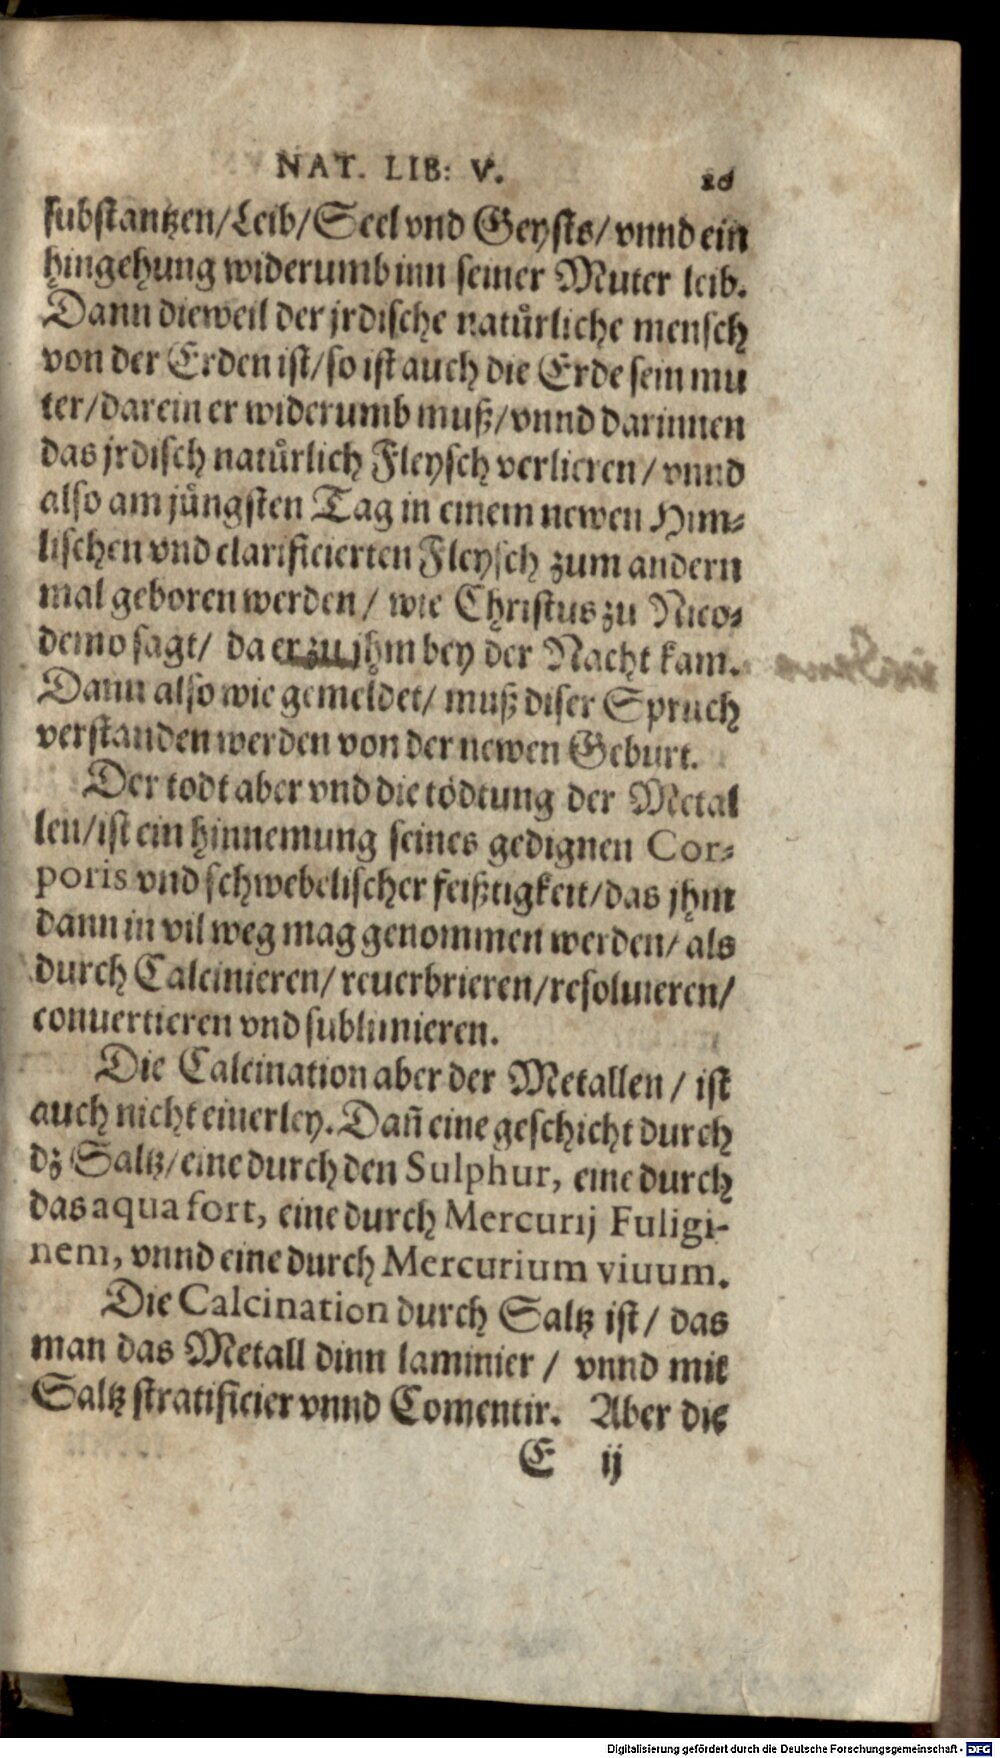 NAT. LIB: V.
substantzen/Leib/Seel vnd Geysts/vnnd ein
hingehung widerumb inn seiner Muter leib.
Dann dieweil der jrdische natůrliche mensch
von der Erden ist/so ist auch die Erde sein mu
ter/darein er widerumb muß/vnnd darinnen
das jrdisch natůrlich Fleysch verlieren/vnnd
also am jůngsten Tag in einem newen Him-
lischen vnd clarificierten Fleysch zum andern
mal geboren werden/ wie Christus zu Nico-
demo sagt/ da er zu jhm bey der Nacht kam.
Dann also wie gemeldet/ muß diser Spruch
verstanden werden von der newen Geburt.
Der todt aber vnd die tödtung der Metal
len/ist ein hinnemung seines gedignen Cor-
poris vnd schwebelischer feißtigkeit/das jhm
dann in vil weg mag genommen werden/ als
durch Calcinieren/reuerbrieren/resoluieren/
conuertieren vnd sublimieren.
Die Calcination aber der Metallen / ist
auch nicht einerley. Dañ eine geschicht durch
dz Saltz/eine durch den Sulphur, eine durch
das aqua fort, eine durch Mercurij Fuligi-
nem, vnnd eine durch Mercurium viuum.
Die Calcination durch Saltz ist/ das
man das Metall dinn laminier / vnnd mit
Saltz stratificier vnnd Comentir. Aber die
E ij
Digitalisierung gefördert durch die Deutsche Forschungsgemeinschaft - DFG